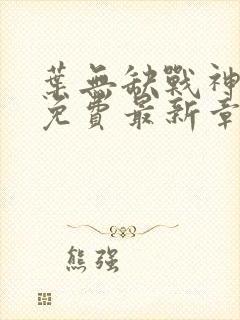 葉無缺戰神
免費最新章
熊强